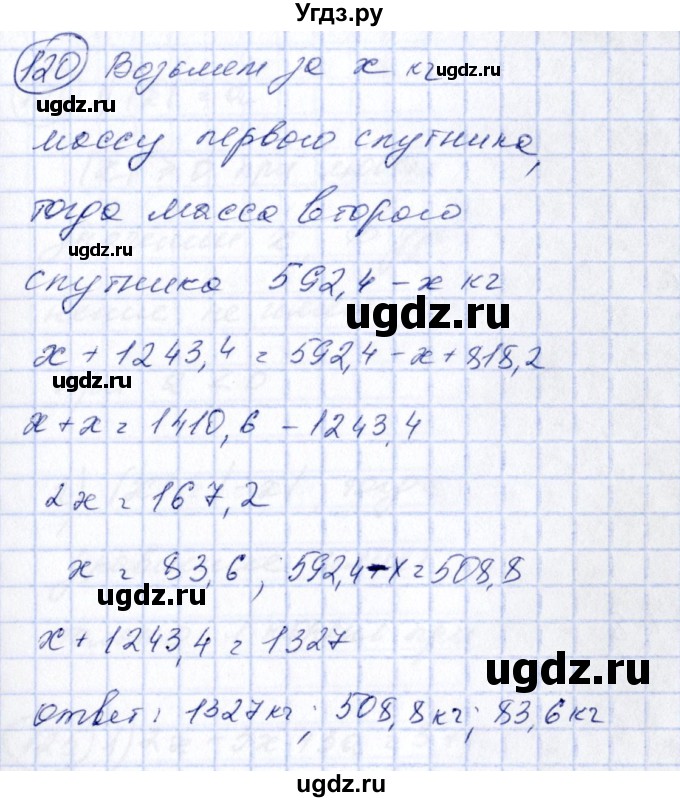 Угдз.ру
120 Возьмем за x кг
ugdz.ru
ugdz.ru
массу первого спутника,
тогда масса второго
ugdz.ru
спутника 592,4 - x кг
ugdz.ru
x + 1243,4 = 592,4 - x + 818,2
ugdz.ru
x + x = 1410,6 - 1243,4
2x = 167,2
x = 83,6 ; 592,4 - x = 508,8
ugdz.ru
x + 1243,4 = 1327
ugdz.ru
ответ: 1327 кг; 508,8 кг; 83,6 кг
ugdz.ru